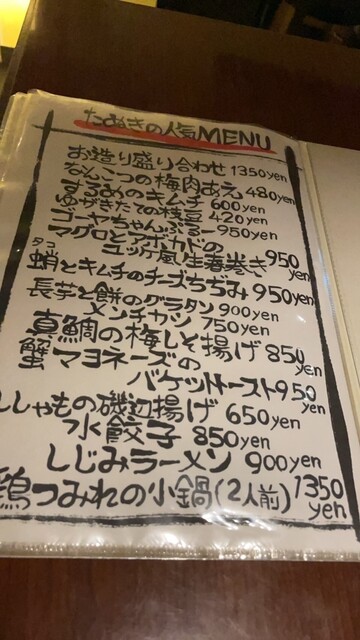 たぬきの人気MENU
お造り盛り合わせ 1350yen
なんこつの梅肉あえ 480yen
するめのキムチ 600yen
ゆがきたての枝豆 420yen
ゴーヤちゃんぷるー 950yen
マグロとアボカドの
ユッケ風生春巻き 950yen
タコ
蛸とキムチのチーズちぢみ 950yen
長芋と餅のグラタン 900yen
メンチカツ 750yen
真鯛の梅しそ揚げ 850yen
蟹マヨネーズの
バケットトースト 950yen
ししゃもの磯辺揚げ 650yen
水餃子 850yen
しじみラーメン 900yen
鶏つみれの小鍋(2人前) 1350yen